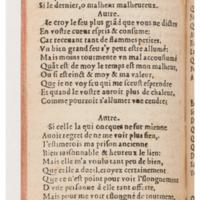 Si le dernier, o malheur malheureux.
Autre.
Ie croy le feu plus grãd que vous ne dictes
En vostre cueur espris & consume;
Car receuant tant de flammes petites,
Vn bien grand feu s'y peut estre allumé:
Mais moins tourmente vn mal accoustumé
Quãt est de moy le temps est mon medecin,
Ou si esteinct & moy & ma valeur,
Que ie ne voy feu qui me sceust esprendre
Et quand le vostre auroit plus de chaleur,
Comme pourroit s'allumer vne cendre;
Autre.
Si celle la qui oncques ne fut mienne
Auoit regret de ne me voir plus sien,
I'estimerois ma prison ancienne
Bien raisonnable & heureux le lien:
Mais elle m'a voulu tant peu de bien,
Que s'elle a dueil, croyez certainement
Que ce n'est point pour voir l'eslongnement
D'vne personne à elle tant offerte,
Mais pour ne voir souffrir de tourment,